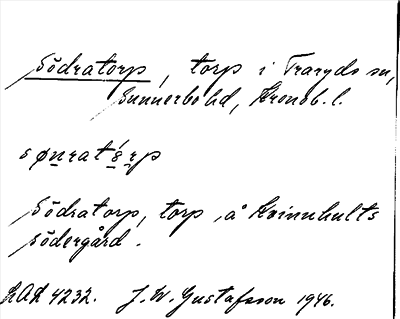 Södratorp, torp i Traryds sn,
Sunnerbo hd, Kronob. l.
sønratórp
Södratorp, torp, å Kvinnhults
södergård.
LAL 4232. J. W. Gustafsson 1946.